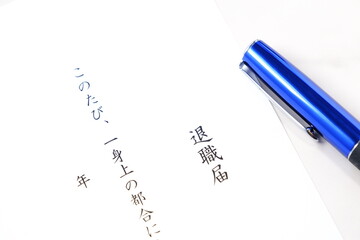 退職届
このたび、一身上の都合に
年